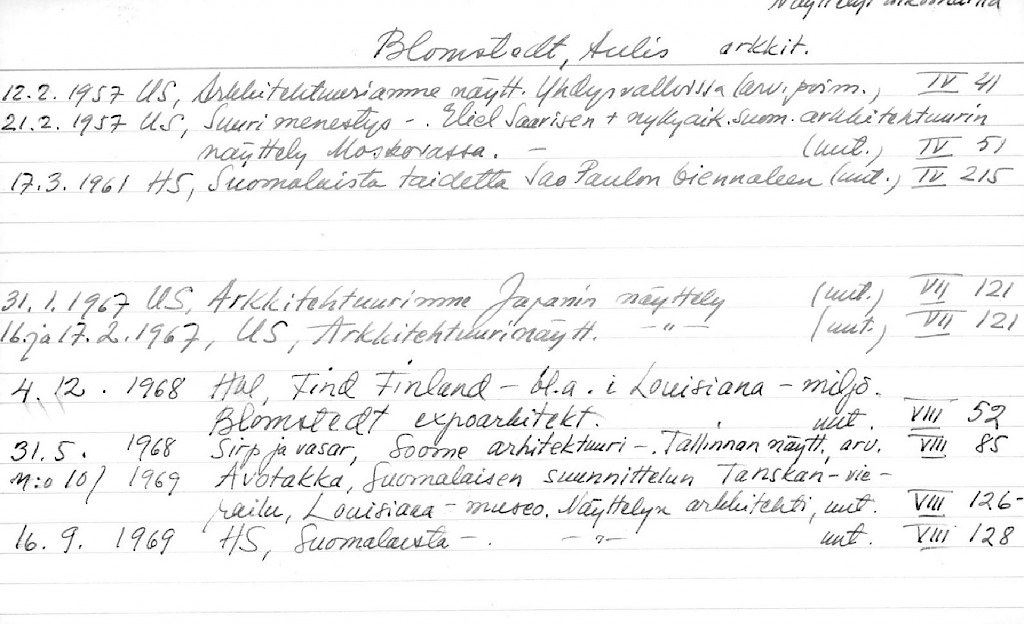 Blomstedt, Aulis arkkit.
12.2.1957 US, Arkkitehtuuriamme näytt. Yhdysvalloissa (arv., poim., IV 41
21.2.1957 US, Suuri menestys -. Eliel Saarisen + nykyaik. suom. arkkitehtuurin
näyttely Moskovassa. - (uut.) IV 51
17.3.1961 HS, Suomalaista taidetta Sao Paulon biennaleen (uut.) IV 215
31.1.1967 US, Arkkitehtuurimme Japanin näyttely (uut.) VII 121
16. ja 17.2.1967, US, Arkkitehtuurinäytt. -"- (uut.) VII 121
4.12. 1968 Hbl, Find Finland - bl.a. i Louisiana - miljö.
Blomstedt expoarkitekt. uut. VIII 52
31.5. 1968 Sirp ja vasar, Soome arhitektuuri -. Tallinnan näytt., arv. VIII 85
n:o 10/ 1969 Avotakka, Suomalaisen suunnittelun Tanskan-vie-
railu, Louisiana-museo. Näyttelyn arkkitehti, uut. VIII 126-
16. 9. 1969 HS, Suomalaista -. -"- uut. VIII 128